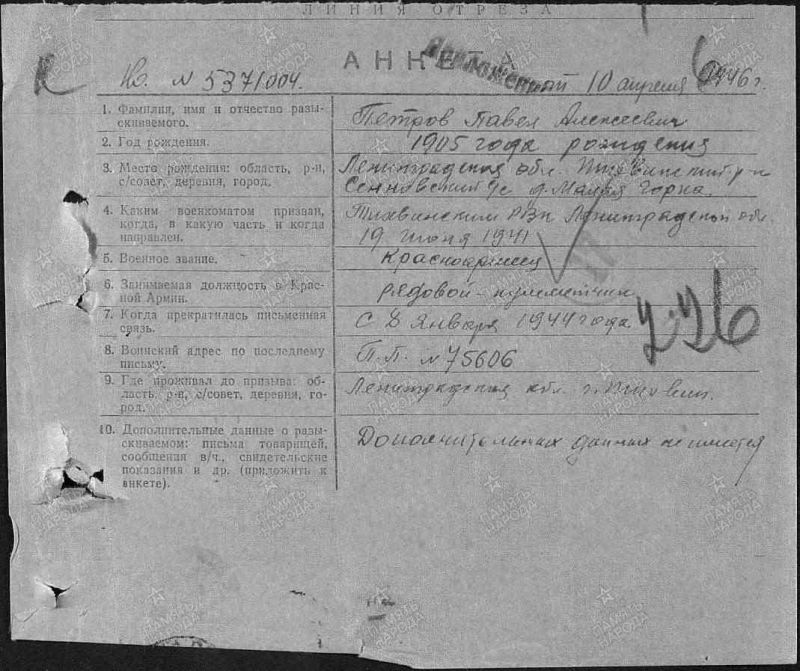 ЛИНИЯ ОТРЕЗА
АНКЕТА
К № 5371004. 10 апреля 1946 г.
1. Фамилия, имя и отчество разы-
скиваемого.
Петров Павел Алексеевич
2. Год рождения.
1905 года рождения
3. Место рождения: область, р-н,
с/совет, деревня, город.
Ленинградская обл. Тихвинский р-н
Сенновский с/с д. Малая Горка.
4. Каким военкоматом призван,
когда, в какую часть и когда
направлен.
Тихвинским РВК Ленинградской обл.
19 июня 1941
5. Военное звание.
Красноармеец
6. Занимаемая должность в Крас-
ной Армии.
рядовой - пулеметчик
7. Когда прекратилась письменная
связь.
с 8 января 1944 года
8. Воинский адрес по последнему
письму.
П.П. № 75606
9. Где проживал до призыва: об-
ласть, р-н, с/совет, деревня, го-
род.
Ленинградская обл. г. Тихвин.
10. Дополнительные данные о разы-
скиваемом: письма товарищей,
сообщения в/ч., свидетельские
показания и др. (приложить к
анкете).
Дополнительных данных не имеется
ПАМЯТЬ НАРОДА